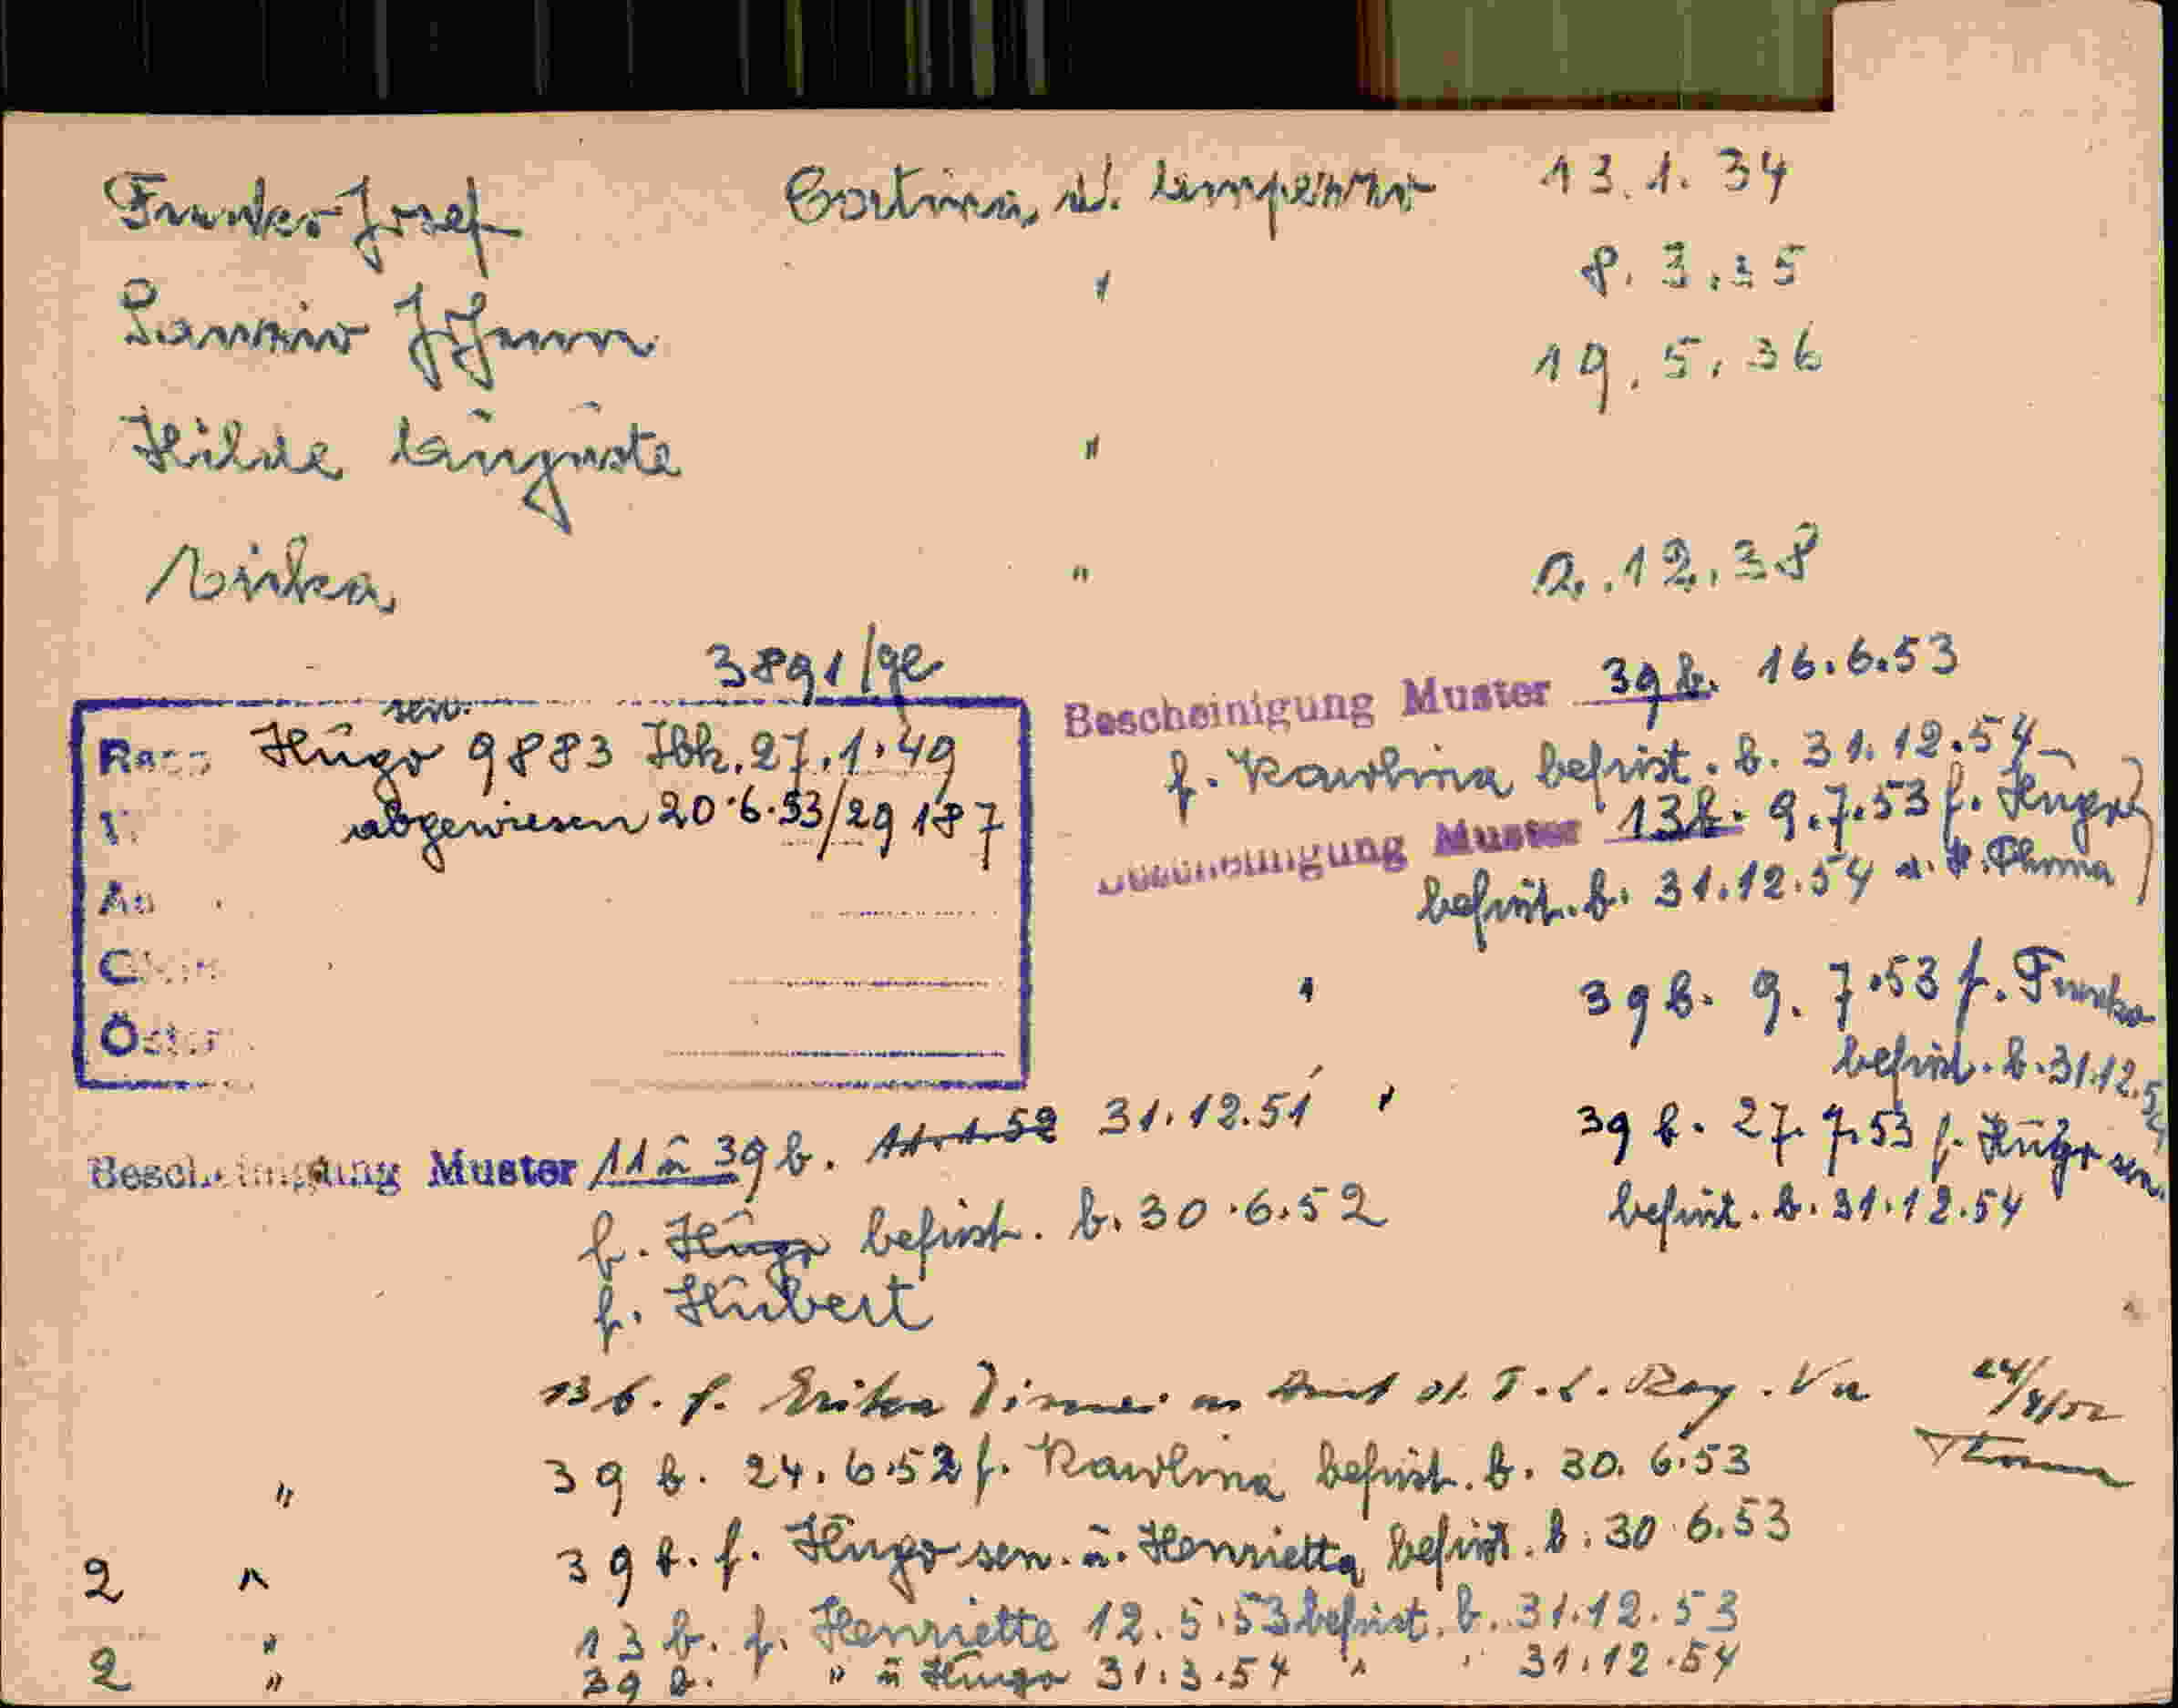 Franko Josef Cortina d. Ampezzo 13.1.34
" 8.3.35
Johann
19.5.36
Hilde Auguste "
Erika " 2.12.38
3891/ge
sen.
Hugo 9883 Ibk. 27.1.49
abgewiesen 20.6.53/29187
Bescheinigung Muster 39 b. 16.6.53
f. Karolina befrist. b. 31.12.54
Bescheinigung Muster 13b. 9.7.53 f. Hugo
befrist. b. 31.12.54
" 39 b. 9.7.53 f. Franko
befrist. b. 31.12.54
Bescheinigung Muster 11 u 39 b. 11.1.52 31.12.51 "
39 b. 27.7.53 f. Hugo sen.
f. Hugo befrist. b. 30.6.52
befrist. b. 31.12.54
f. Hubert
13 b. f. Erika
" 39 b. 24.6.52 f. Karolina befrist. b. 30.6.53
2 " 39 b. f. Hugo sen. u. Henrietta befrist. b. 30.6.53
" 13 b. f. Henriette 12.5.53 befrist. b. 31.12.53
2 " 39 b. " u Hugo 31.3.54 " " 31.12.54